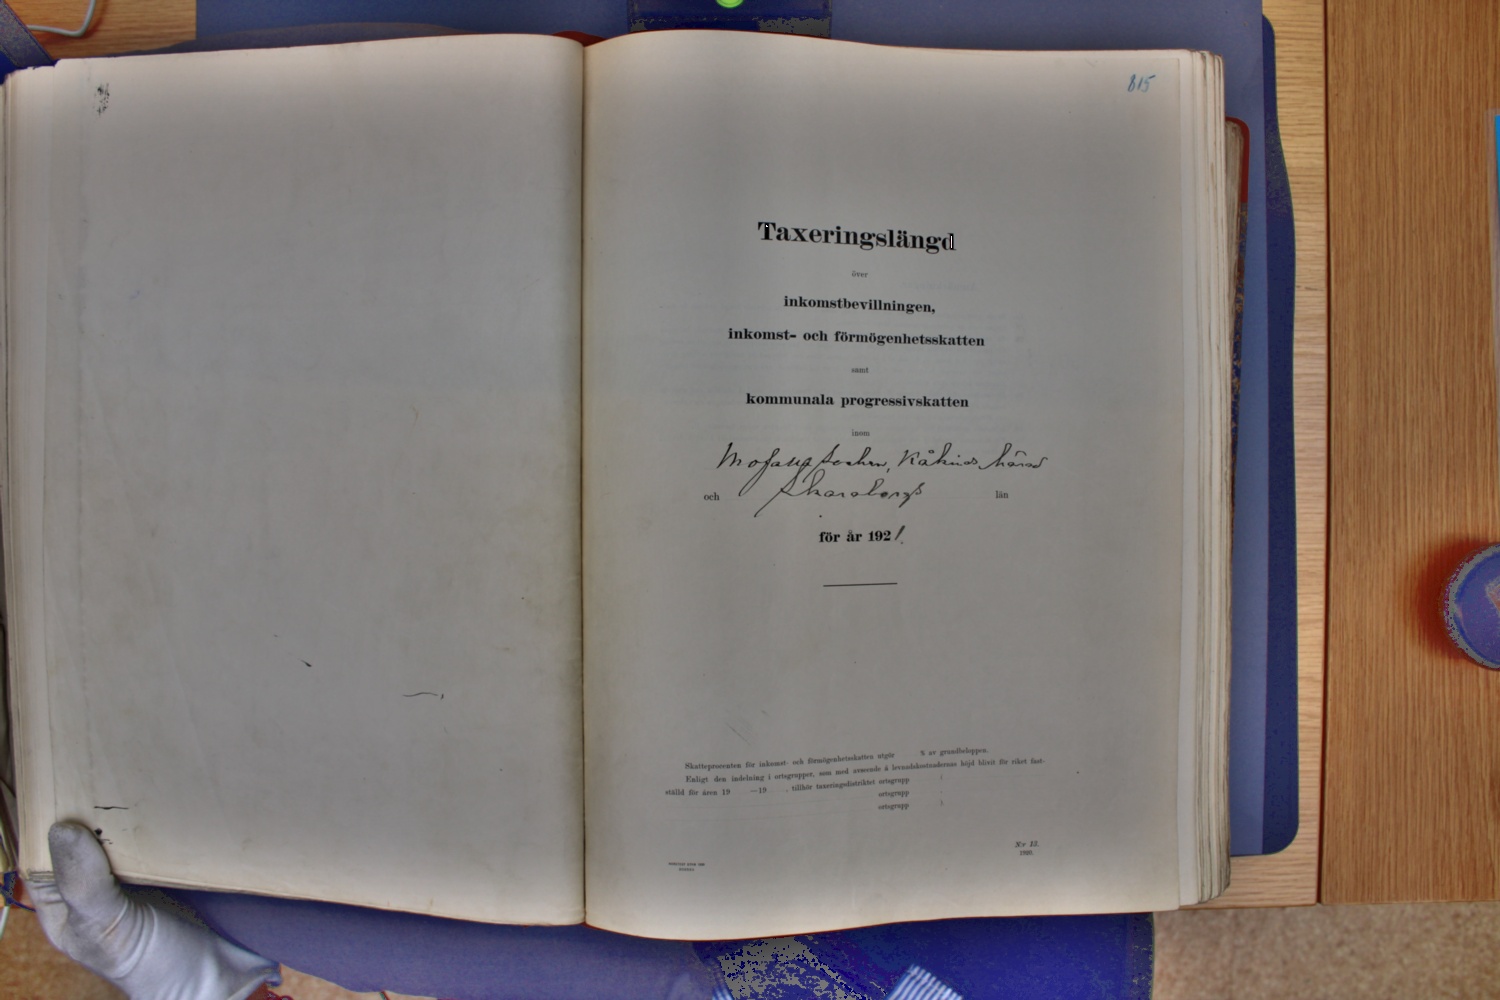 815
Taxeringslängd
över
inkomstbevillningen,
inkomst- och förmögenhetsskatten
samt
kommunala progressivskatten
inom
Mofalla socken, Kåkinds härad
och Skaraborgs län
för år 1921.
Skatteprocenten för inkomst- och förmögenhetsskatten utgör % av grundbeloppen.
Enligt den indelning i ortsgrupper, som med avseende å levnadskostnadernas höjd blivit för riket fast-
ställd för åren 19 —19 , tillhör taxeringsdistriktet ortsgrupp
ortsgrupp
ortsgrupp
N:r 13.
1920.